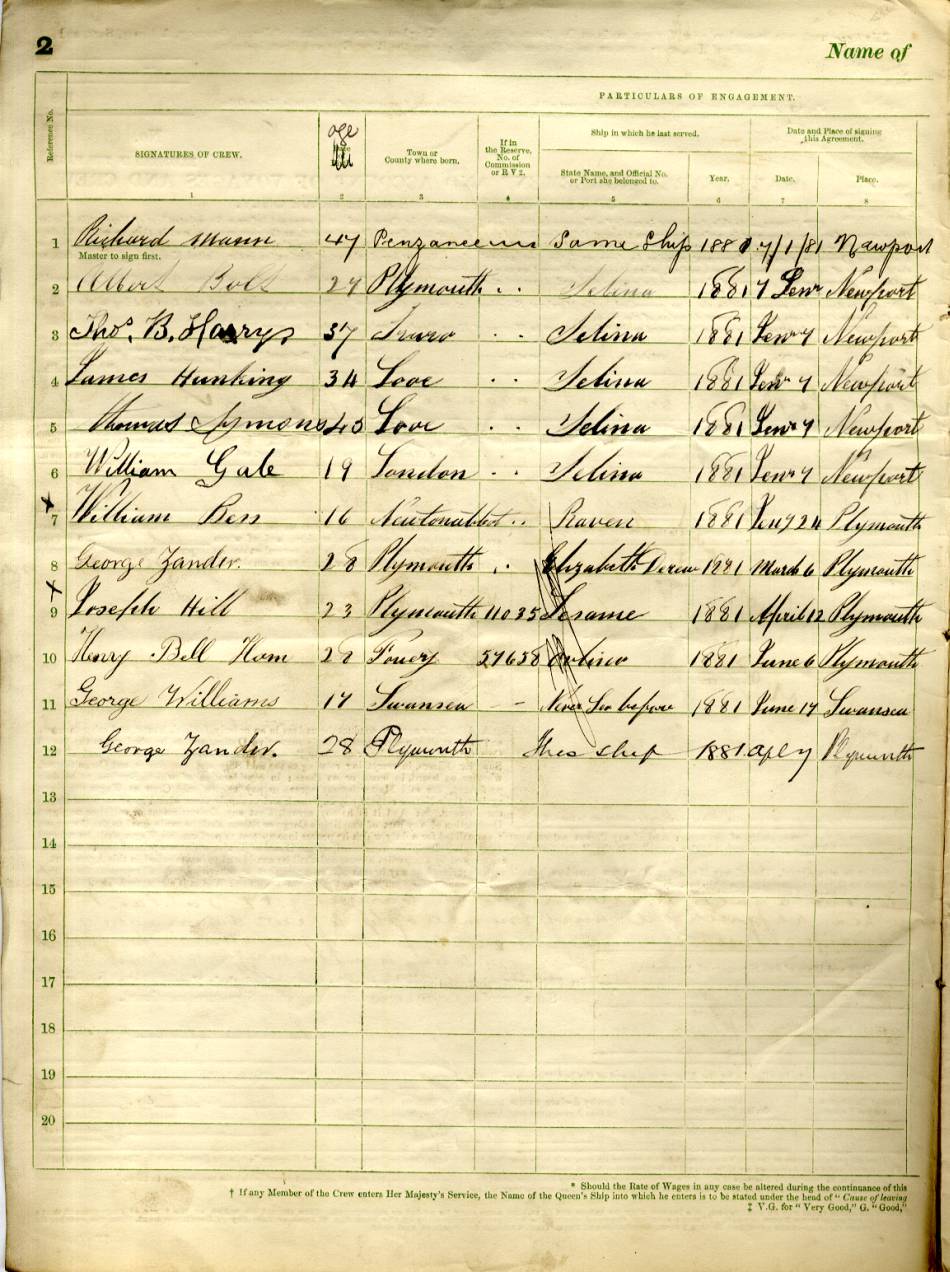 2
Name of
PARTICULARS OF ENGAGEMENT.
Reference No.
SIGNATURES OF CREW.
age
Town or County where born.
If in the Reserve, No. of Commission or R V 2.
Ship in which he last served.
State Name, and Official No. or Port she belonged to.
Year.
Date and Place of signing this Agreement.
Date.
Place.
1 2 3 4 5 6 7 8
1 Richard Mann 47 Penzance Same Ship 1880 7/1/81 Newport
Master to sign first.
2 Albert Bolt 27 Plymouth .. Selina 1881 7 Jany Newport
3 Thos. B. Harrys 37 Truro .. Selina 1881 Jany 7 Newport
4 James Hunking 34 Looe .. Selina 1881 Jany 7 Newport
5 Thomas Symons 45 Looe .. Selina 1881 Jany 7 Newport
6 William Gale 19 London .. Selina 1881 Jany 7 Newport
x
7 William Bess 16 Newtonabbot .. Raven 1881 24 Plymouth
8 George Zander. 28 Plymouth .. Elizabeth 1881 March 6 Plymouth
x
9 Joseph Hill 23 Plymouth 11035 Sesame 1881 April 12 Plymouth
10 Henry Bell Hom 28 Fowey 57658 1881 June 6 Plymouth
11 George Williams 17 Swansea - - Never Sea before 1881 June 17 Swansea
12 George Zander. 28 Plymouth this ship 1881 Aply Plymouth
13
14
15
16
17
18
19
20
* Should the Rate of Wages in any case be altered during the continuance of this
† If any Member of the Crew enters Her Majesty's Service, the Name of the Queen's Ship into which he enters is to be stated under the head of "Cause of leaving
‡ V.G. for "Very Good," G. "Good,"